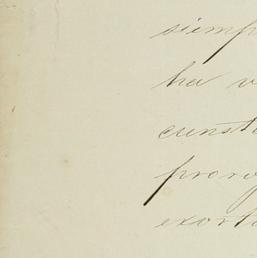 siemp
ha v
cunst
proro
exort